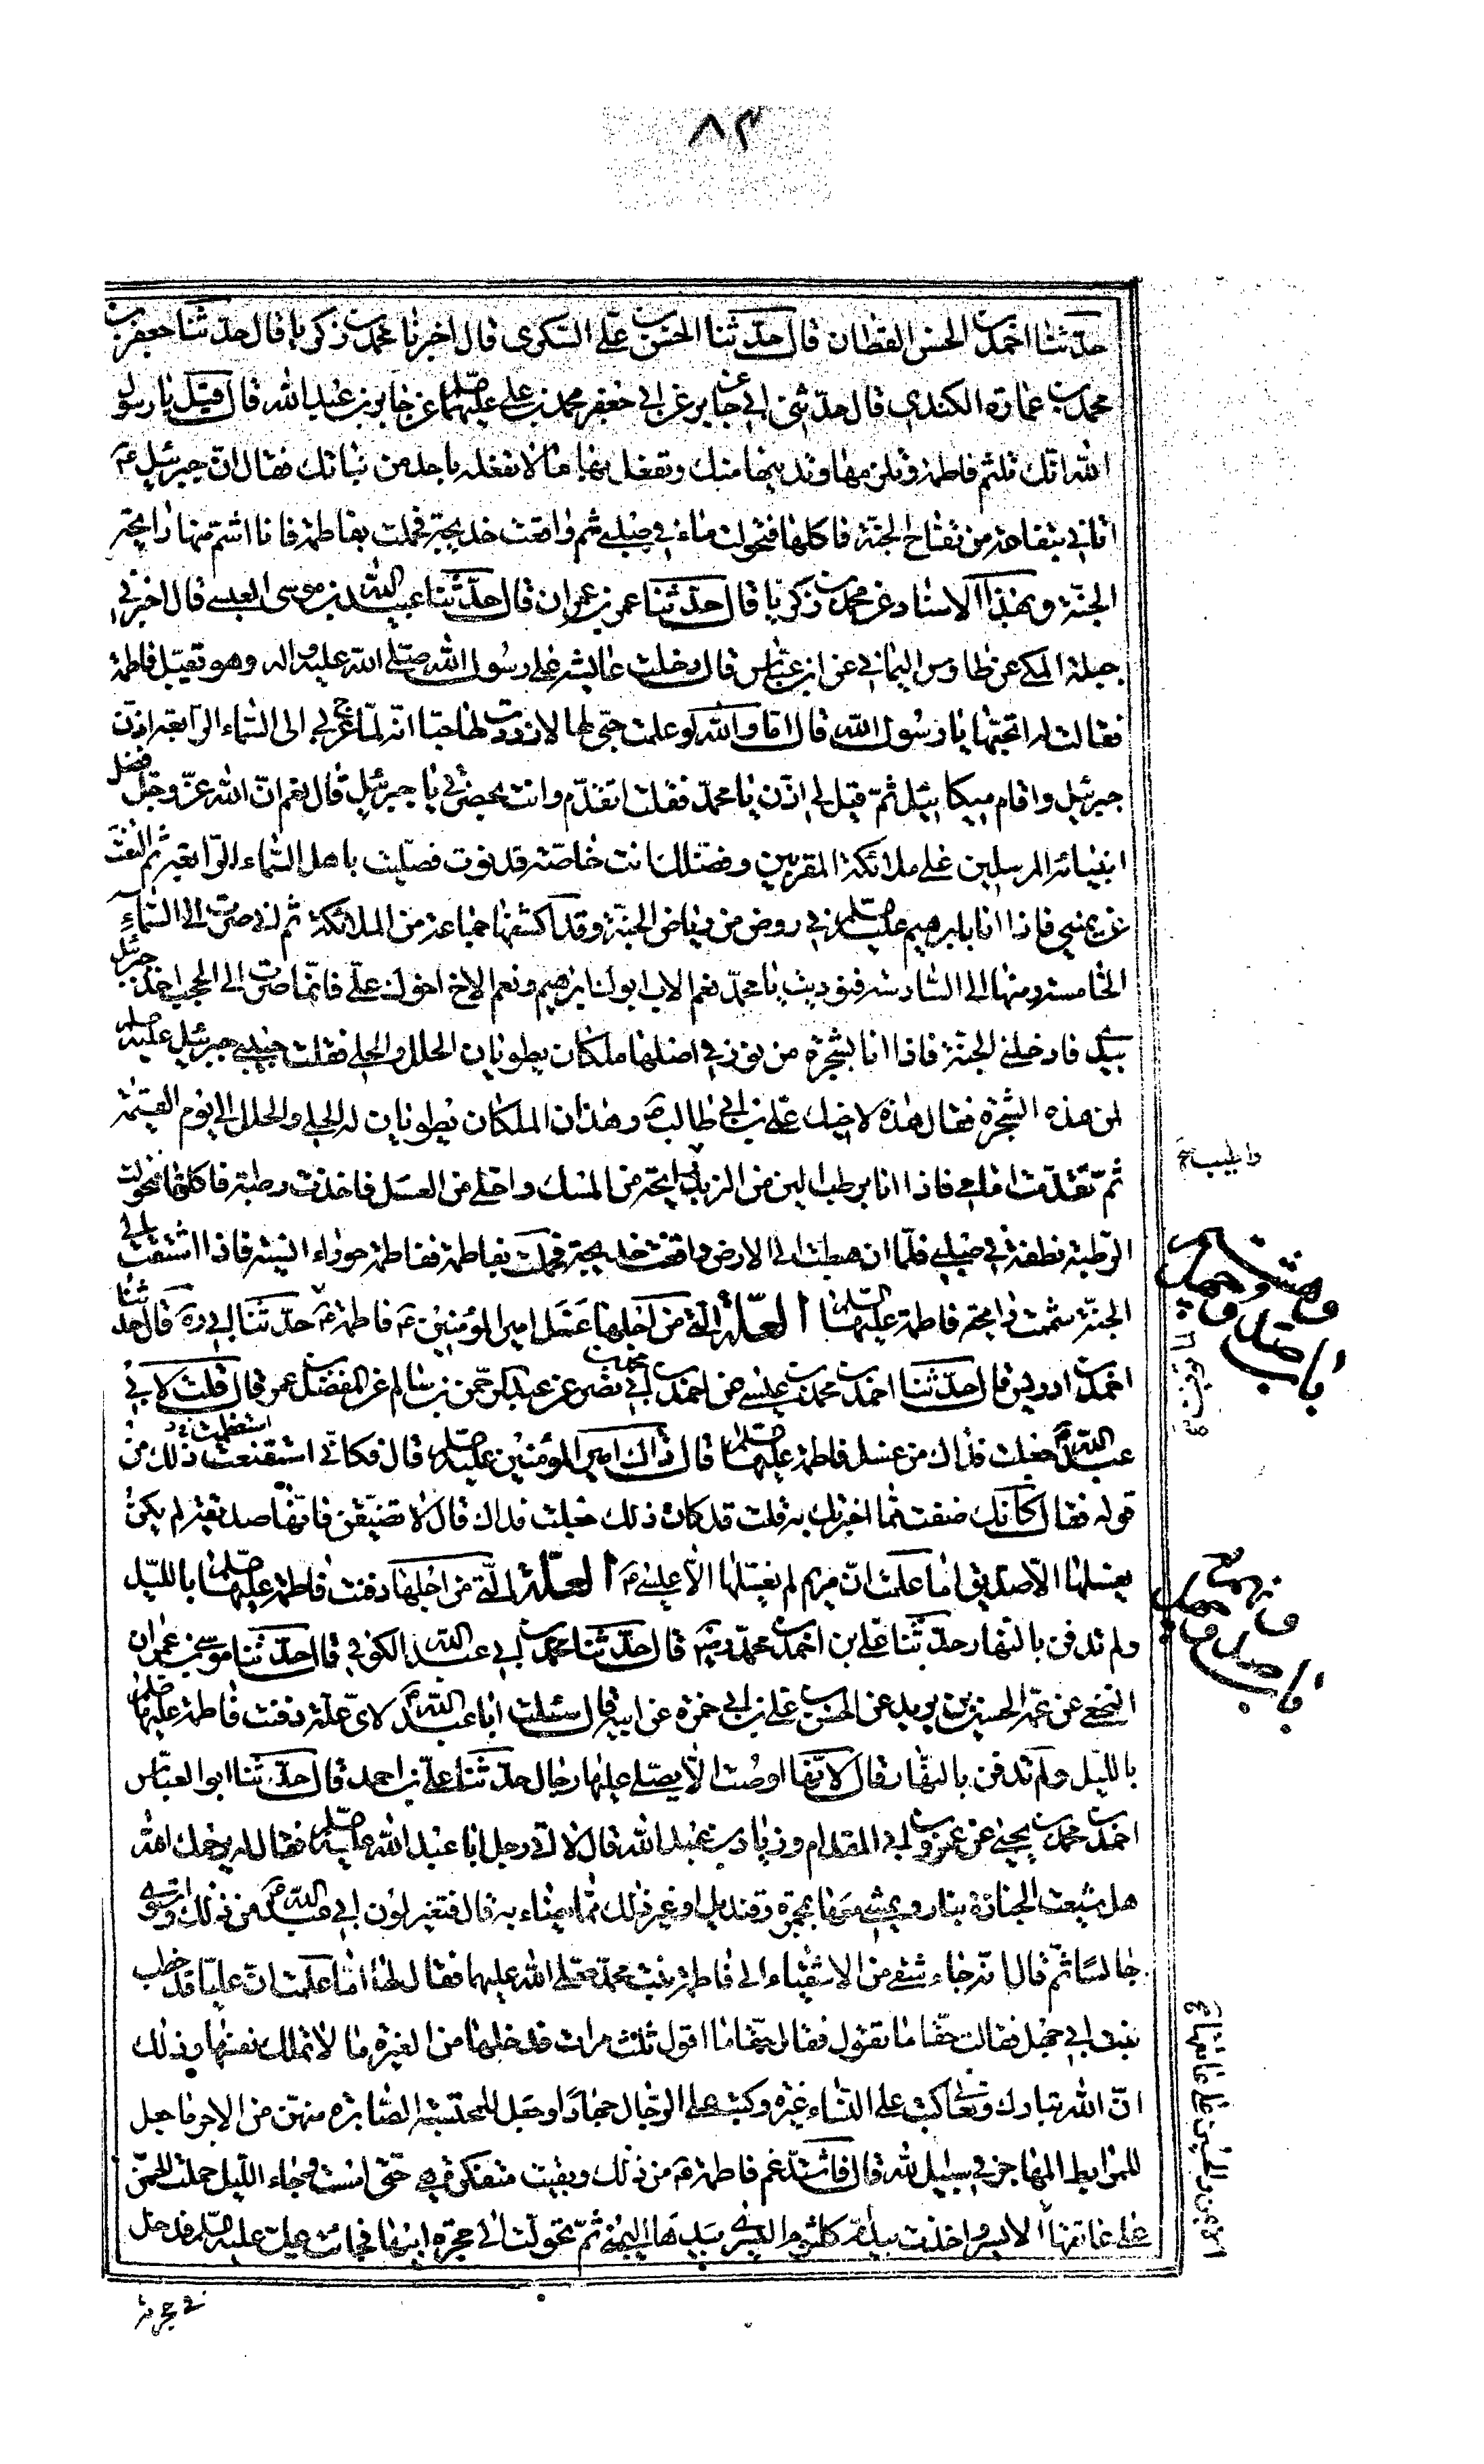 ٨٣
حدّثنا احمد بن الحسن القطان قال حدّثنا الحسن بن علي السكري قال اخبرنا محمد بن زكريا قال حدّثنا جعفر بن
محمد بن عمارة الكندي قال حدّثني ابي عن جابر عن ابي جعفر محمد بن علي عليهما صلم عن جابر بن عبد الله قال قيل يا رسول
الله انّك تلثم فاطمة وتلزمها وتدنيها منك وتفعل بها ما لا تفعله باحد من بناتك فقال انّ جبرئيل ع
اتاني بتفاحة من تفّاح الجنّة فاكلتها فتحولت ماء في صلبي ثم واقعت خديجة فحملت بفاطمة فانا اشم منها رايحة
الجنة وبهذا الاسناد عن محمد بن زكريا قال حدّثنا عمر بن عمران قال حدّثنا عبيد الله بن موسى العبسي قال اخبرني
جبلة المكي عن طاوس اليماني عن ابن عبّاس قال دخلت عايشه على رسول الله صلّى الله عليه واله وهو يقبّل فاطمة
فقالت له اتحبّها يا رسول الله قال اما والله لو علمت حبّي لها لازددت لها حبّا انّه لمّا عرج بي الى السّماء الرّابعة اذّن
جبرئيل واقام ميكائيل ثمّ قيل لي اذن يا محمّد فقلت اتقدّم وانت بحضرتي يا جبرئيل قال نعم انّ الله عزّ وجلّ فضل
انبيائه المرسلين على ملائكة المقربين وفضّلك انت خاصّة فدنوت فصلّيت باهل السّماء الرّابعة ثم التفتّ
عن يميني فاذا انا بابرهيم عليه صلم في روض من رياض الجنّة وقد اكتنفها جماعة من الملائكة ثم اني صرت الى السّماء
الخامسة ومنها الى السّادسة فنوديت يا محمّد نعم الاب ابوك ابرهيم ونعم الاخ اخوك عليّ فلمّا صرت الى الحجب اخذ جبرئيل
بيدي فادخلني الجنّة فاذا انا بشجرة من نور في اصلها ملكان يطويان الحلل والحلي فقلت حبيبي جبرئيل عليه صلم
لمن هذه الشجرة فقال هذه لاخيك عليّ بن ابي طالب ع وهذان الملكان يطويان له الحلي والحلل الى يوم القيمة
ثمّ تقدّمت امامي فاذا انا برطب الين من الزبد رايحة من المسك واحلى من العسل فاخذت رطبة فاكلتها فتحولت
الرّطبة نطفة في صلبي فلمّا ان هبطت الى الارض واقعت خديجة فحملت بفاطمة ففاطمة حوراء انسية فاذا اشتقت الى
الجنّة شممت رايحة فاطمة عليها السلم العلّة الّتي من اجلها غسّل امير المؤمنين ع فاطمة ع حدّثنا ابي ره قال حدّثنا
احمد بن ادريس قال حدّثنا احمد بن محمد بن عيسى عن احمد بن محمد بن ابي نصر عن عبد الرحمن بن سالم عن المفضل بن عمر قال قلت لابي
عبد الله ع جعلت فداك من غسل فاطمة عليها صلم قال ذاك امير المؤمنين عليه صلم قال فكانّي استعظمت استفظعت ذلك من
قوله فقال كانّك ضقت ممّا اخبرتك به قلت قد كان ذلك جعلت فداك قال لا تضيقن فانّها صديقة لم يكن
يغسلها الّا صديق اما علمت انّ مريم لم يغسّلها الّا عيسى ع العلّة الّتي من اجلها دفنت فاطمة عليها صلم بالليل
ولم تدفن بالنهار حدّثنا علي بن احمد بن محمّد رضي قال حدّثنا محمد بن ابي عبد الله الكوفي قال حدّثنا موسى بن عمران
النخعي عن عمّه الحسين بن يزيد عن الحسن بن علي بن ابي حمزة عن ابيه قال سئلت ابا عبد الله ع لايّ علّة دفنت فاطمة عليها صلم
بالليل ولم تدفن بالنهار قال لانّها اوصت الّا يصلّي عليها رجال حدّثنا عليّ بن احمد قال حدّثنا ابو العبّاس
احمد بن محمد بن يحيى عن عمرو بن ابي المقدام وزياد بن عبد الله قالا اتى رجل ابا عبد الله عليه صلم فقال له يرحمك الله
هل يشيعت الجنازة بنار ويمشي معها بمجمرة وقنديل او غير ذلك ممّا يضاء به قال فتغير لون ابي عبد الله ع من ذلك واستوى
جالسا ثمّ قال انّه جاء شقي من الاشقياء الى فاطمة بنت محمد صلى الله عليهما فقال لها اما علمت انّ عليّا قد خطب
بنت ابي جهل فقالت حقّا ما تقول فقال حقّا ما اقول ثلث مرات فدخلها من الغيرة ما لا تملك نفسها وذلك
انّ الله تبارك وتعالى كتب على النّساء غيرة وكتب على الرّجال جهادا وجعل للمحتسبة الصّابرة منهنّ من الاجر ما جعل
للمرابط المهاجر في سبيل الله قال فاشتدّ غم فاطمة ع من ذلك وبقيت متفكرة هي حتّى امست وجاء الليل حملت الحسن
على عاتقها الايسر واخذت بيد ام كلثوم اليسرى بيدها اليمنى ثمّ تحولت الى حجرة ابيها فجائت علي عليه صلم فدخل
في حجرته
واطيب ح
باب صد و
باب صد و
الايمن والحسين على عاتقها ح